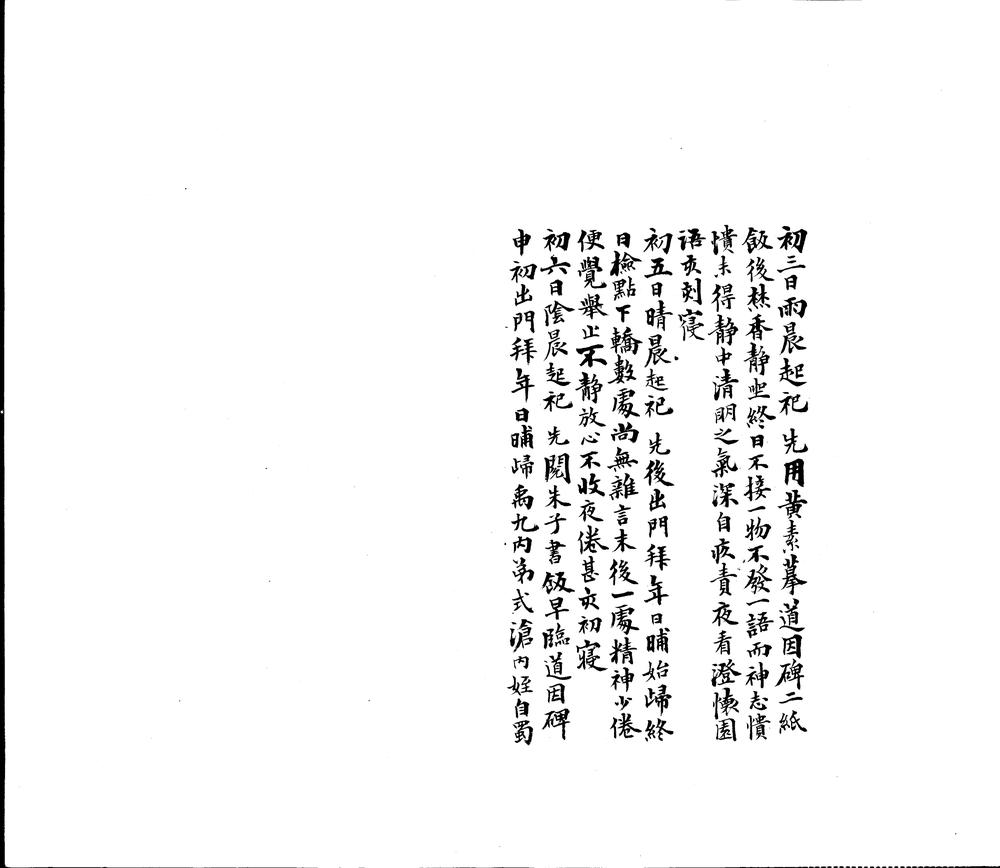 初三日雨晨起祀 先用黃素摹道因碑二紙
飯後焚香靜坐終日不接一物不發一語而神志憒
憒未得靜中清明之氣深自疚責夜看澄懷園
語亥刻寢
初五日晴晨起祀 先後出門拜年日晡始歸終
日檢點下轎數處尚無雜言末後一處精神少倦
便覺舉止不靜放心不收夜倦甚亥初寢
初六日陰晨起祀 先閱朱子書飯早臨道因碑
申初出門拜年日晡歸禹九內弟式滄內姪自蜀